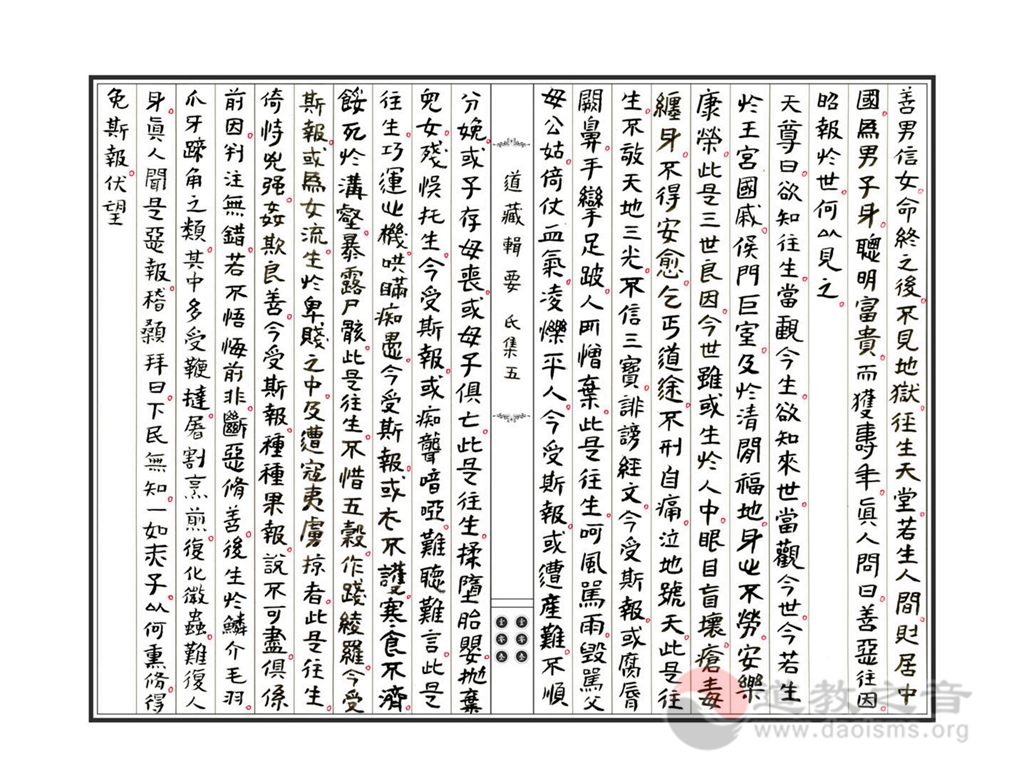 善男信女命終之後不見地獄往生天堂若生人間則居中
國爲男子身聰明富貴而獲壽年眞人問曰善惡往因
昭報於世何以見之
天尊曰欲知往生當觀今生欲知來世當觀今世今若生
於王宮國戚侯門巨室及於清閒福地身心不勞安樂
康榮此是三世良因今世雖或生於人中眼目盲壞瘡毒
纏身不得安愈乞丐道途不刑自痛泣地號天此是往
生不敬天地三光不信三寶誹謗經文今受斯報或腐唇
闕鼻手攣足跛人所憎棄此是往生呵風罵雨毀罵父
母公姑倚仗血氣凌爍平人今受斯報或遭產難不順
道藏輯要 氐集五
分娩或子存母喪或母子俱亡此是往生揉墮胎嬰抛棄
兒女殘悞托生今受斯報或痴聾喑啞難聽難言此是
往生巧運心機哄瞞痴愚今受斯報或衣不護寒食不濟
餒死於溝壑暴露尸骸此是往生不惜五穀作踐綾羅今受
斯報或爲女流生於卑賤之中及遭寇夷虜掠者此是往生
倚恃兇强姦欺良善今受斯報種種果報說不可盡俱係
前因判注無錯若不悟悔前非斷惡脩善後生於鱗介毛羽
爪牙蹄角之類其中多受鞭撻屠割烹煎復化微蟲難復人
身眞人聞是惡報稽顙拜曰下民無知一如赤子以何熏脩得
免斯報伏望
道教之音
www.daoisms.org